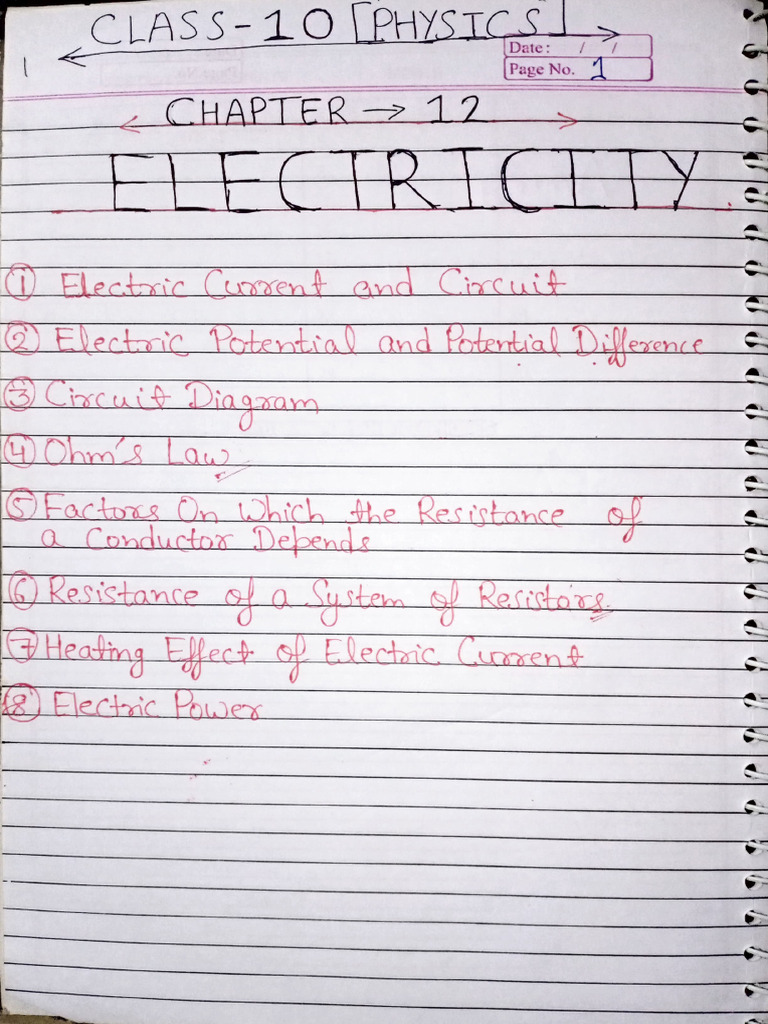 CLASS-10 [PHYSICS]
Date: / /
Page No. 1
CHAPTER → 12
ELECTRICITY
① Electric Current and Circuit
② Electric Potential and Potential Difference
③ Circuit Diagram
④ Ohm's Law
⑤ Factors On Which the Resistance of
a Conductor Depends
⑥ Resistance of a System of Resistors.
⑦ Heating Effect of Electric Current
⑧ Electric Power